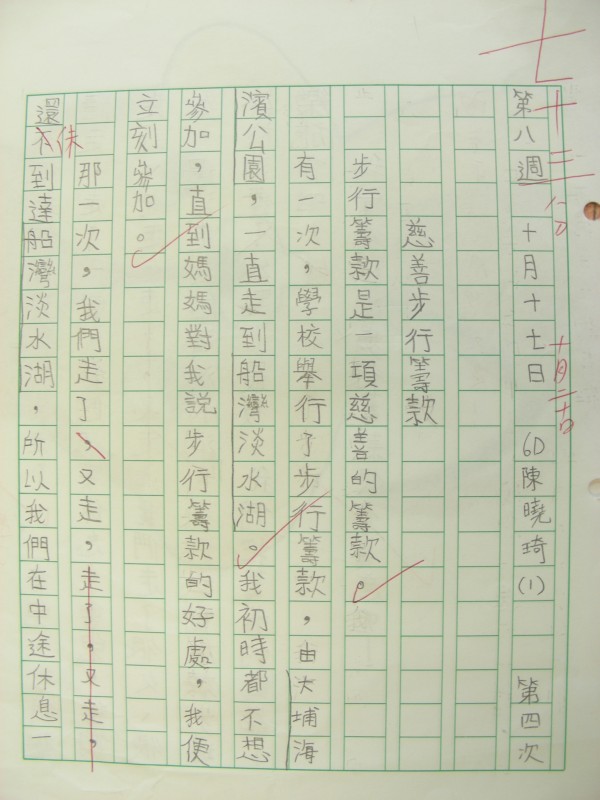 七十三分
第八週 十月十七日 6D 陳曉琦 (1) 第四次
慈善步行籌款
步行籌款是一項慈善的籌款。
有一次，學校舉行了步行籌款，由大埔海
濱公園，一直走到船灣淡水湖。我初時都不想
參加，直到媽媽對我說步行籌款的好處，我便
立刻參加。
那一次，我們走了，又走，走了，又走，
還未到達船灣淡水湖，所以我們在中途休息一